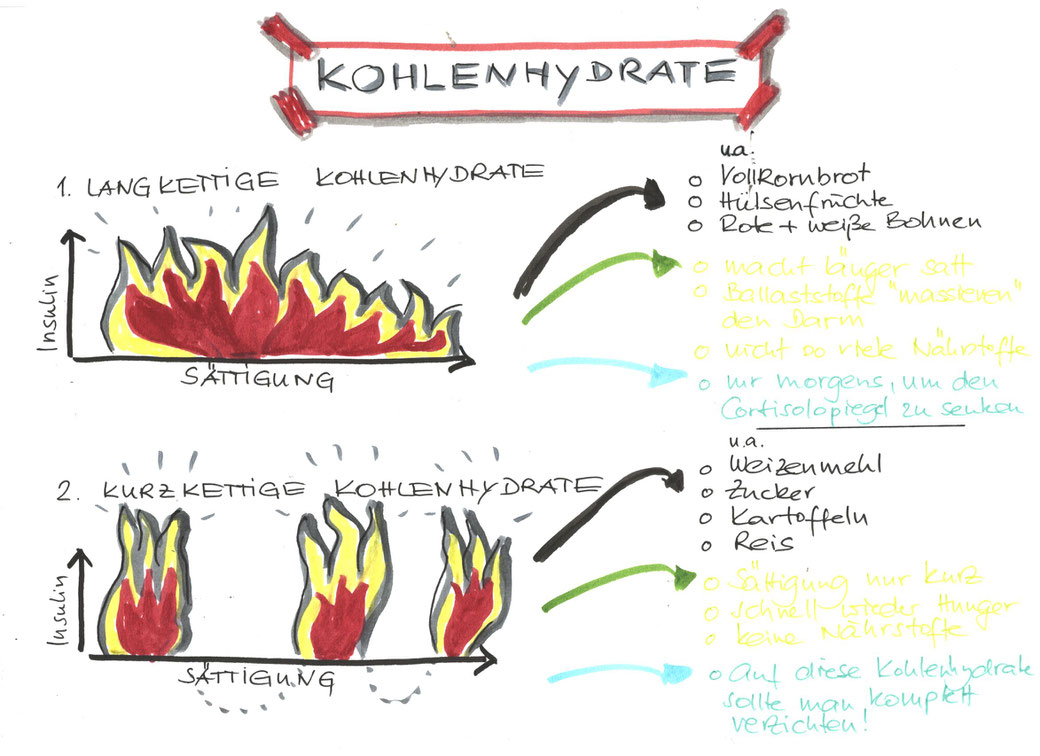 KOHLENHYDRATE
1. LANGKETTIGE KOHLENHYDRATE
Insulin
SÄTTIGUNG
u.a.
o Vollkornbrot
o Hülsenfrüchte
o Rote + weiße Bohnen
o macht länger satt
o Ballaststoffe "massieren"
den Darm
o nicht so viele Nährstoffe
o nur morgens, um den
Cortisolspiegel zu senken
2. KURZKETTIGE KOHLENHYDRATE
Insulin
SÄTTIGUNG
u.a.
o Weizenmehl
o Zucker
o Kartoffeln
o Reis
o Sättigung nur kurz
o schnell wieder Hunger
o keine Nährstoffe
o Auf diese Kohlenhydrate
sollte man komplett
verzichten!